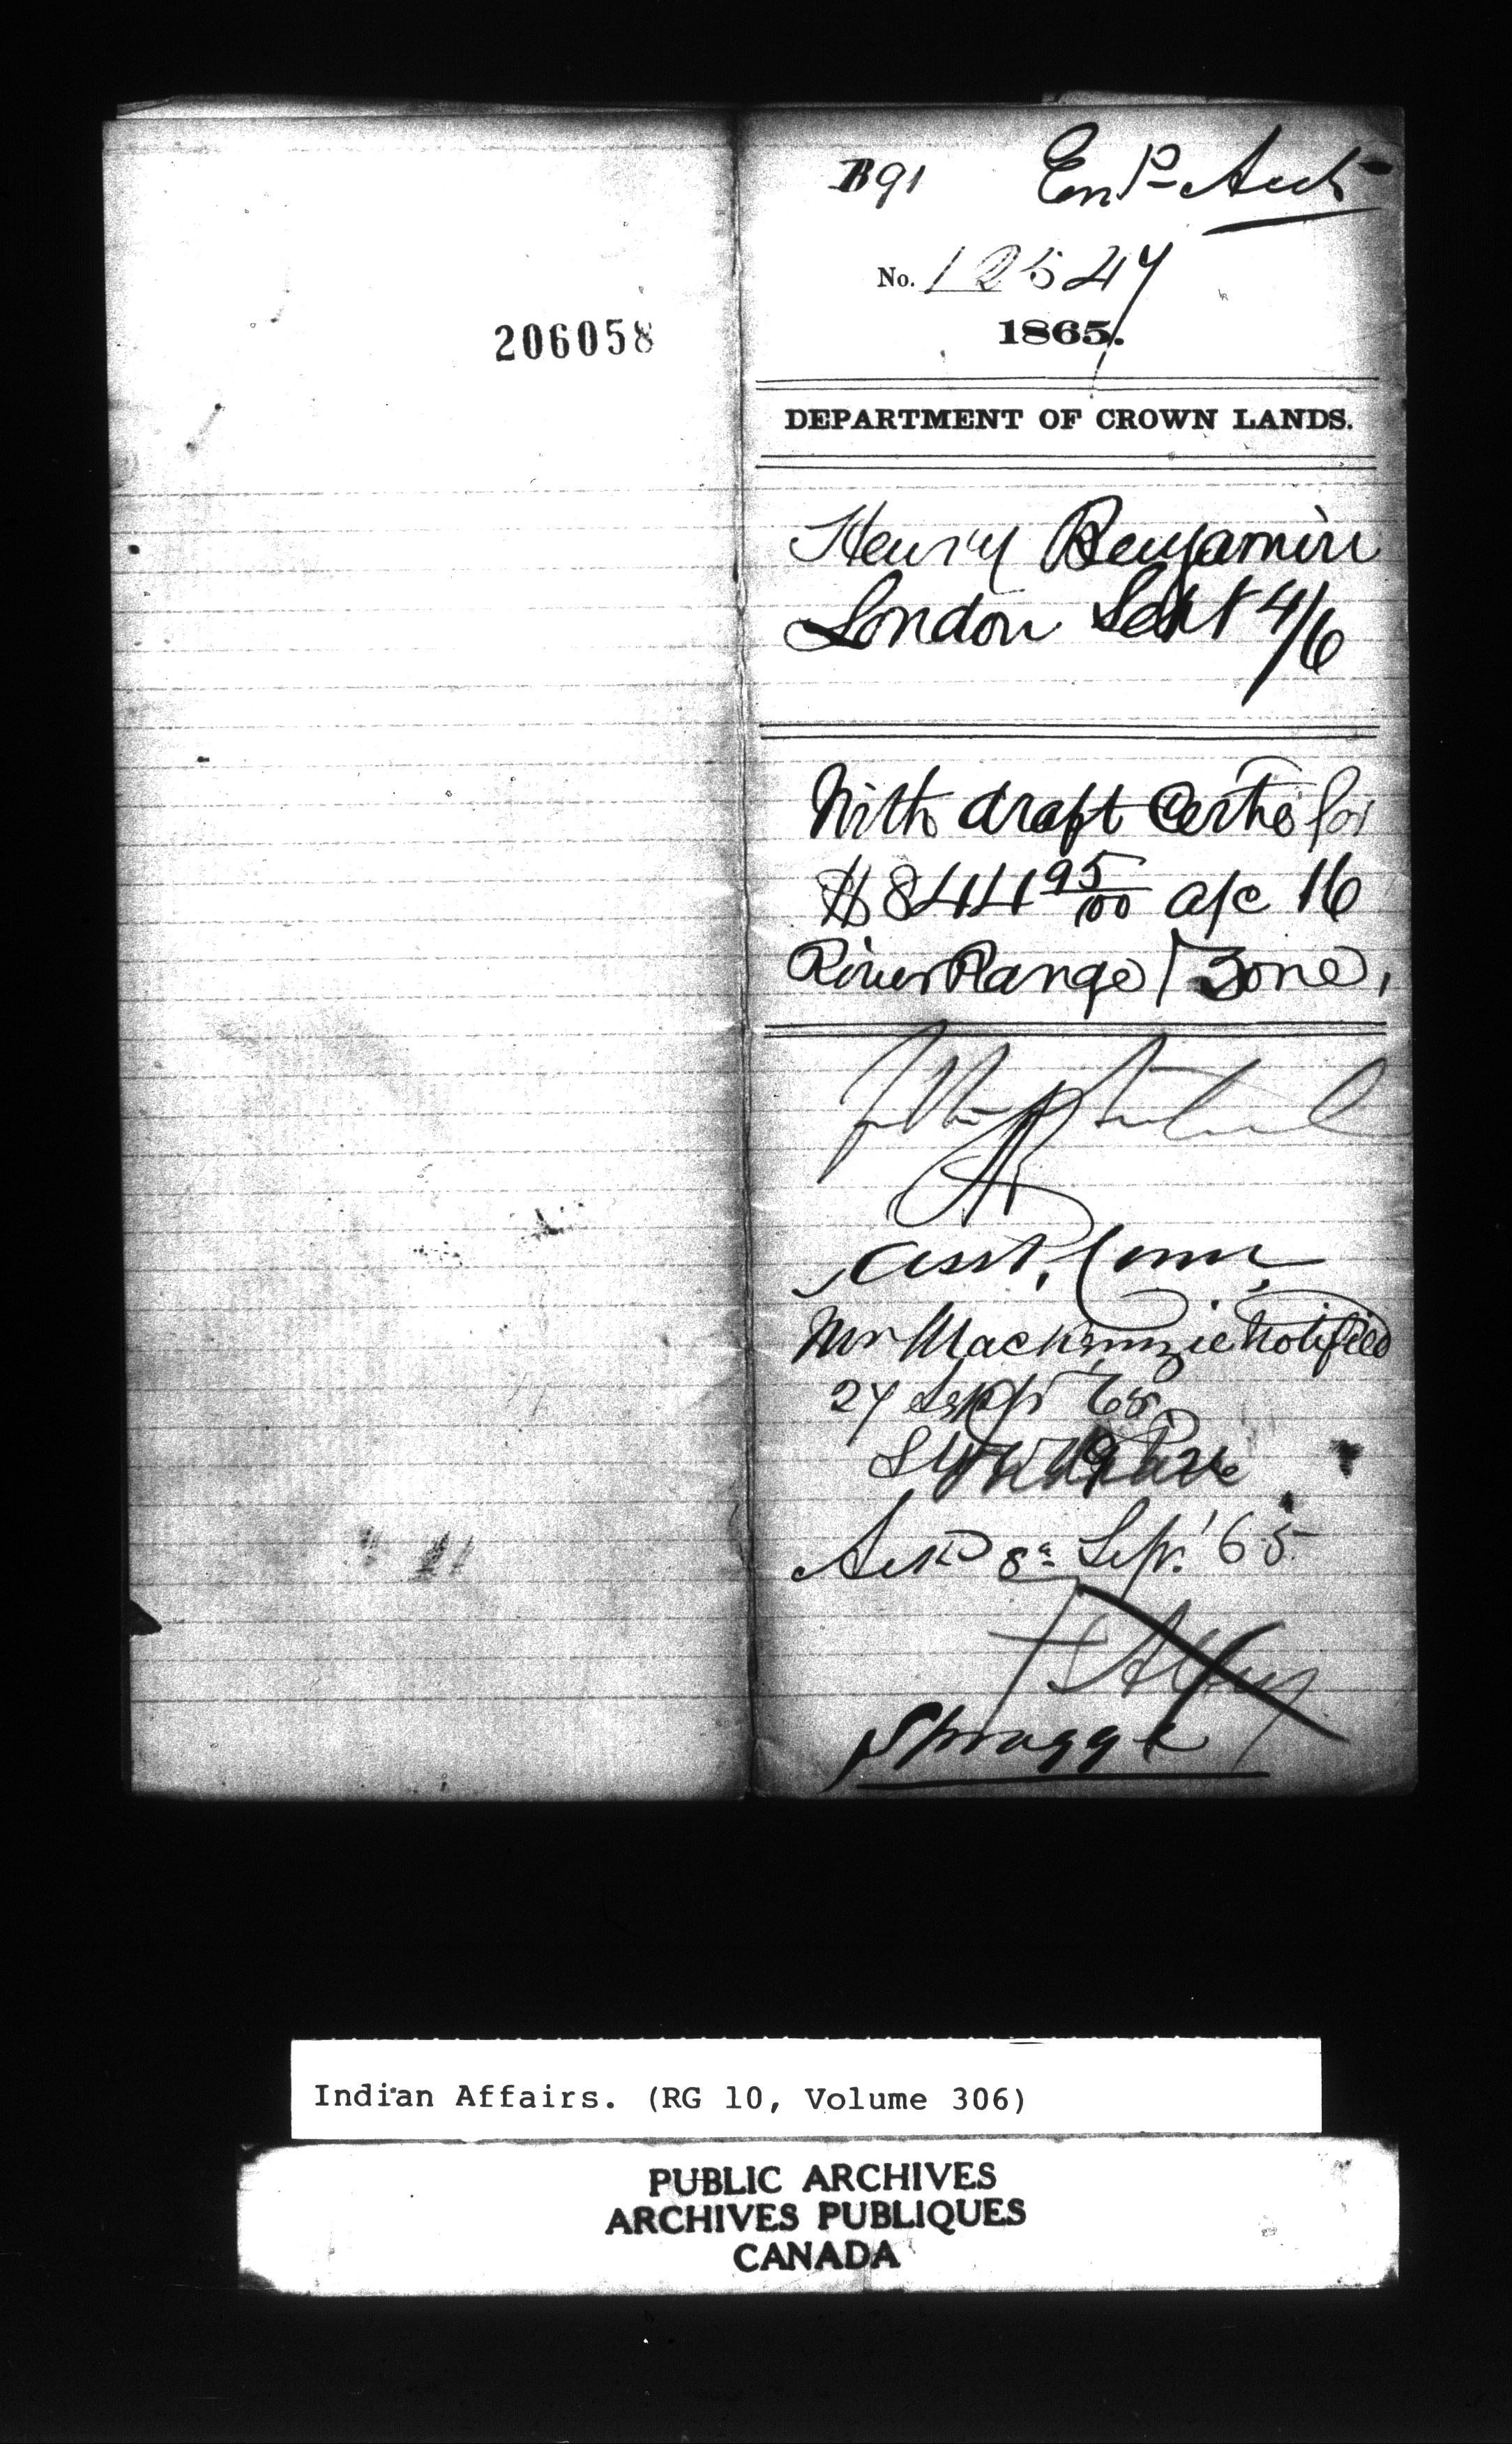 206058
B91 Entd Acct
No. 12547
1865.
DEPARTMENT OF CROWN LANDS.
Henry Benjamin
London Sept 4/6
With draft Certe for
$844 95/00 a/c 16
River Range / Zone,
Asst. Comr.
Mr MacKenzie Notified
27 Sept 65
Ackd 8th Sepr. '65
Spragge
Indian Affairs. (RG 10, Volume 306)
PUBLIC ARCHIVES
ARCHIVES PUBLIQUES
CANADA